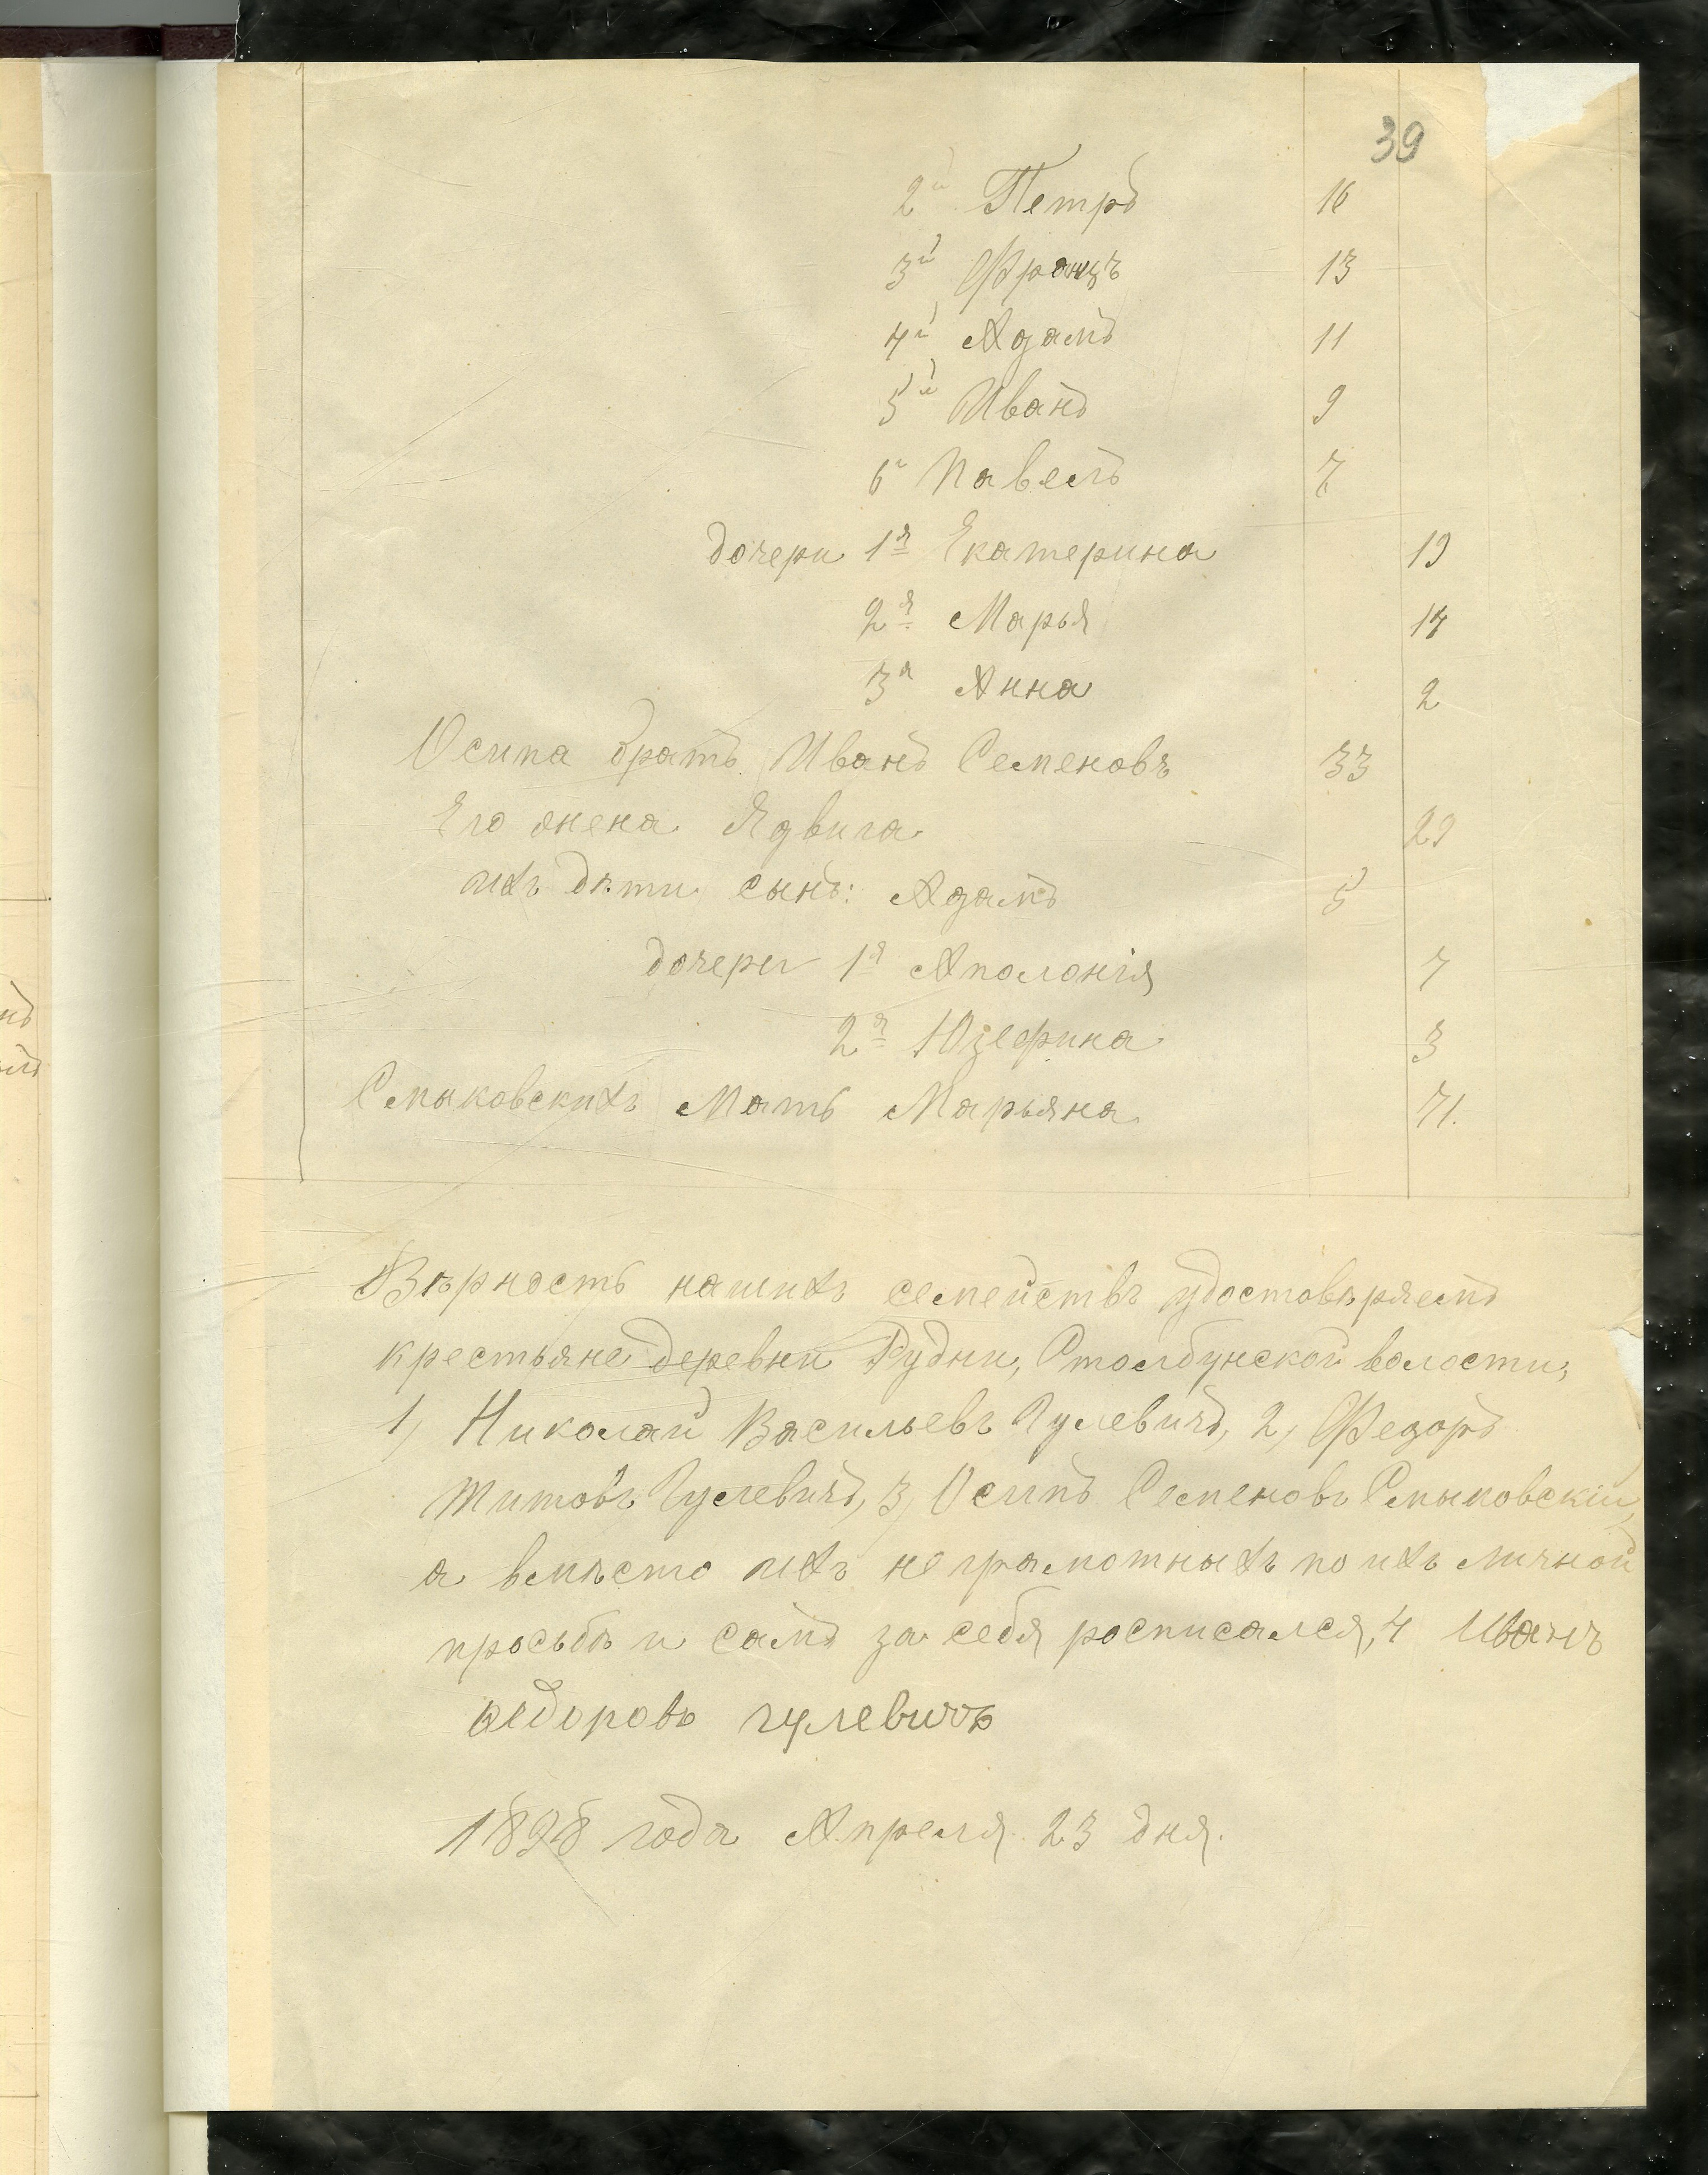 39
2й Петръ 16
3й Францъ 13
4й Адамъ 11
5й Иванъ 9
6й Павелъ 7
дочери 1я Екатерина 19
2я Марья 14
3я Анна 2
Осипа братъ Иванъ Семеновъ 33
Его жена Ядвига 29
ихъ дѣти сынъ: Адамъ 5
дочери 1я Аполонія 7
2я Юзефина 3
Смыковскихъ Мать Марьяна 71.
Вѣрность нашихъ семействъ удостовѣряемъ
крестьяне деревни Рудни, Столбунской волости,
1, Николай Васильевъ Гулевичъ, 2, Федоръ
Титовъ Гулевичъ, 3, Осипъ Семеновъ Смыковскій,
а вмѣсто ихъ неграмотныхъ по ихъ личной
просьбѣ и самъ за себя росписался, 4 Иванъ
Ѳедоровъ гулевичъ
1898 года Апреля 23 дня.